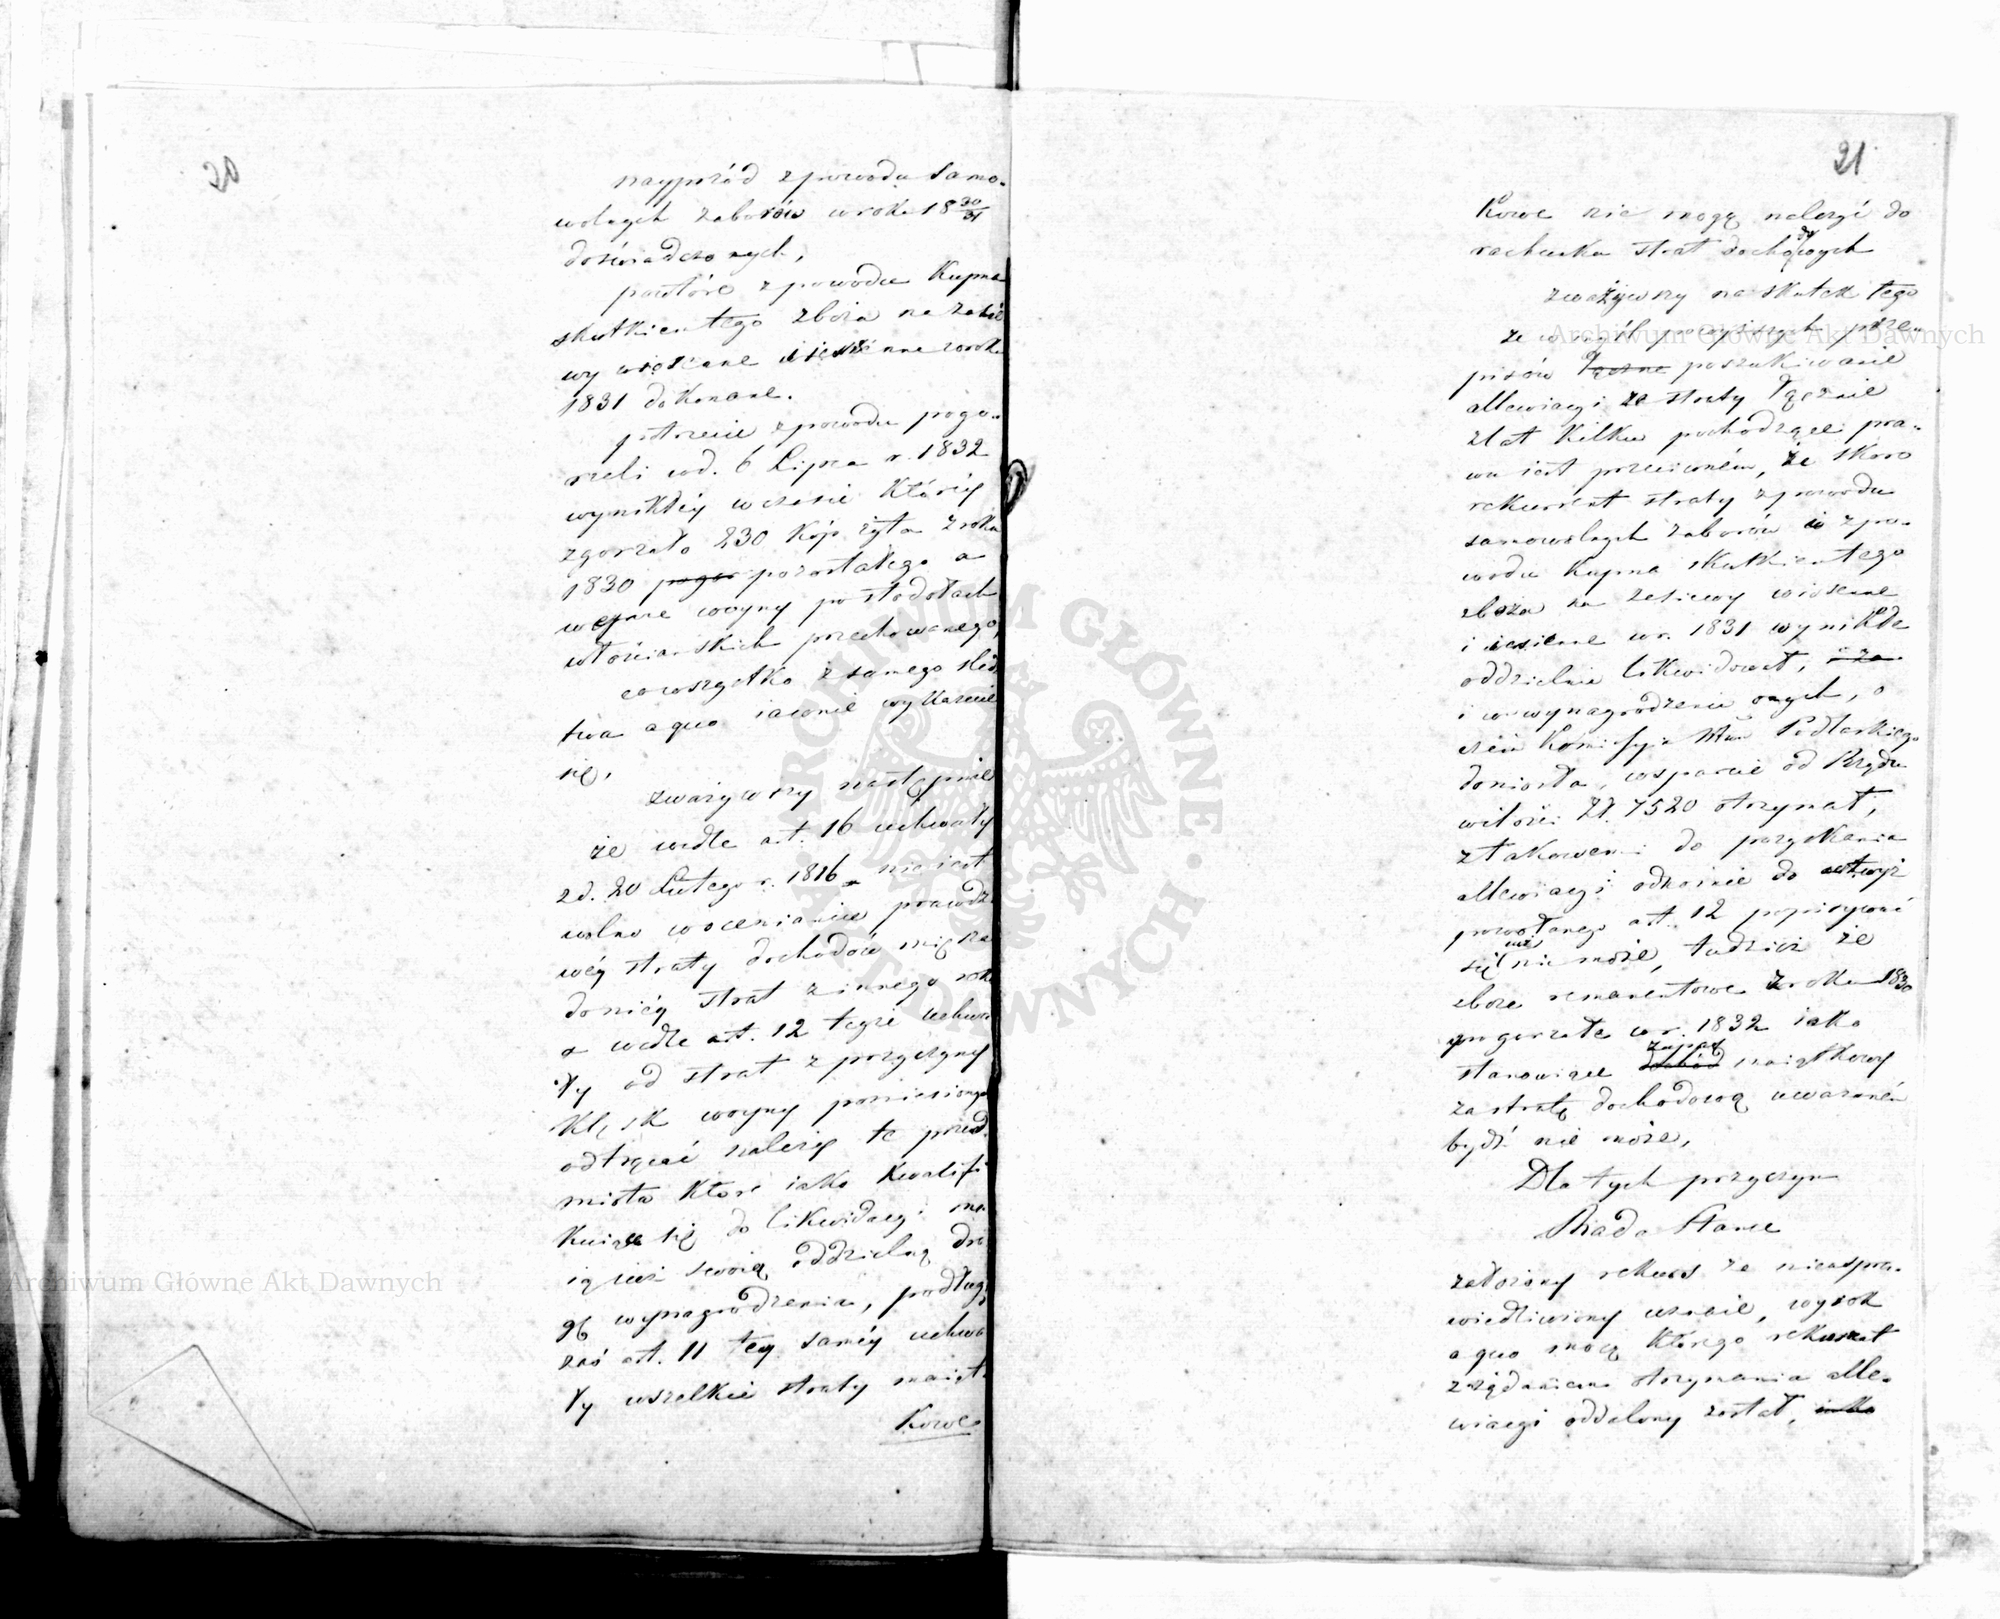 20
naypród z powodu samo-
wolnych zaborów w roku 18 30/31
doświadczonych,
powtóre z powodu Kupna
skutkiem tego zboża na zasie
wy wiosenne i jesienne w roku
1831 dokonane.
potrzecie z powodu pogo-
rzeli w d. 6 Lipca r. 1832
wynikłey w czasie któréy
zgorzało 230 Kóp żyta z roku
1830 pozostałego a
wczasie woyny po stodołach
włościańskich przechowanego,
co wszystko z samego sledz
twa a quo iawnie wykazuie
się,
zważywszy następnie
że wedle art. 16 uchwały
z d. 20 Lutego r. 1816 nie iest
wolno w ocenianiu prawdzi
wéy straty dochodów mięsza
doniéy strat z innego roku
a wedle art. 12 teyże uchwa
ły od strat z przyczyny
Klęsk woyny poniesionych
odtrącać należy te przed-
miota które iako Kwalifi
Kuiące się do likwidacyi ma
ią iuż swoią oddzielną dro
gę wynagrodzenia, podług
zaś art. 11 tey saméy uchwa
ły wszelkie straty maiąt-
Kowe
21
Kowe nie mogą należyć do
rachunku strat dochodowych
zważywszy na skutek tego
że w myśl powyższych prze-
pisów poszukiwanie
allewiacyi ze straty łącznie
z lat Kilku pochodzącéi pra-
wu iest przeciwném, że skoro
rekurrent straty z powodu
samowolnych zaborów i z po-
wodu Kupna skutkiem tego
zboża na zasiewy wiosenne
i iesienne w r. 1831 wynikłe
oddzielnie likwidował,
i w wynagrodzeniu onych, o
czém Kommissya Wttwa Podlaskiego
doniosła, wsparcie od Rządu
w ilości Zł. 7520 otrzymał,
z takowemi do pozyskania
allewiacyi odnośnie do wtwyż
powołanego art. 12 popisywać
się już nie może, tudzież że
zboże remanentowe z roku 1830
pogorzałe w r. 1832 iako
stanowiące zapas maiątkowy
za stratę dochodową uważaném
bydź nie może,
Dla tych przyczyn
Rada Stanu
założony rekurs za nieuspra-
wiedliwiony uznaie, wyrok
a quo mocą Którego rekurrent
z żądaniem otrzymania alle-
wiacyi oddalony został,
Archiwum Główne Akt Dawnych
Archiwum Główne Akt Dawnych
ARCHIWUM GŁÓWNE AKT DAWNYCH